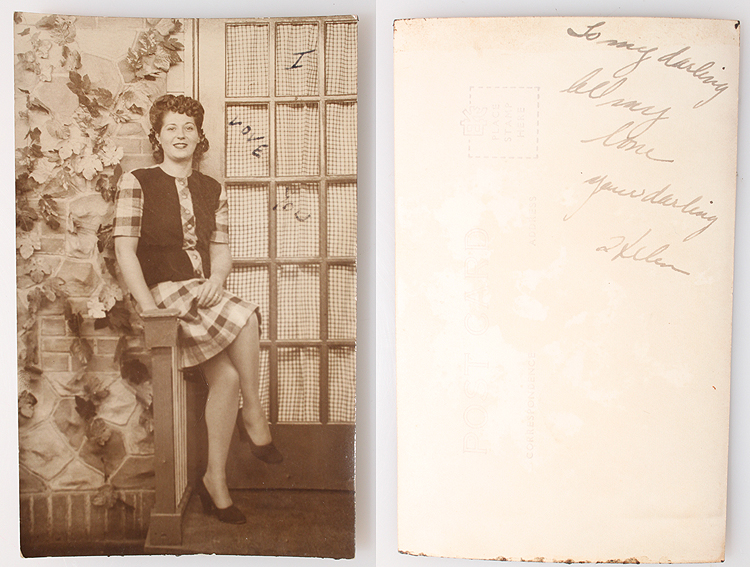 I
LOVE
YOU
To my darling
all my
love
your darling
Helen
PLACE
STAMP
HERE
POST CARD
ADDRESS
CORRESPONDENCE